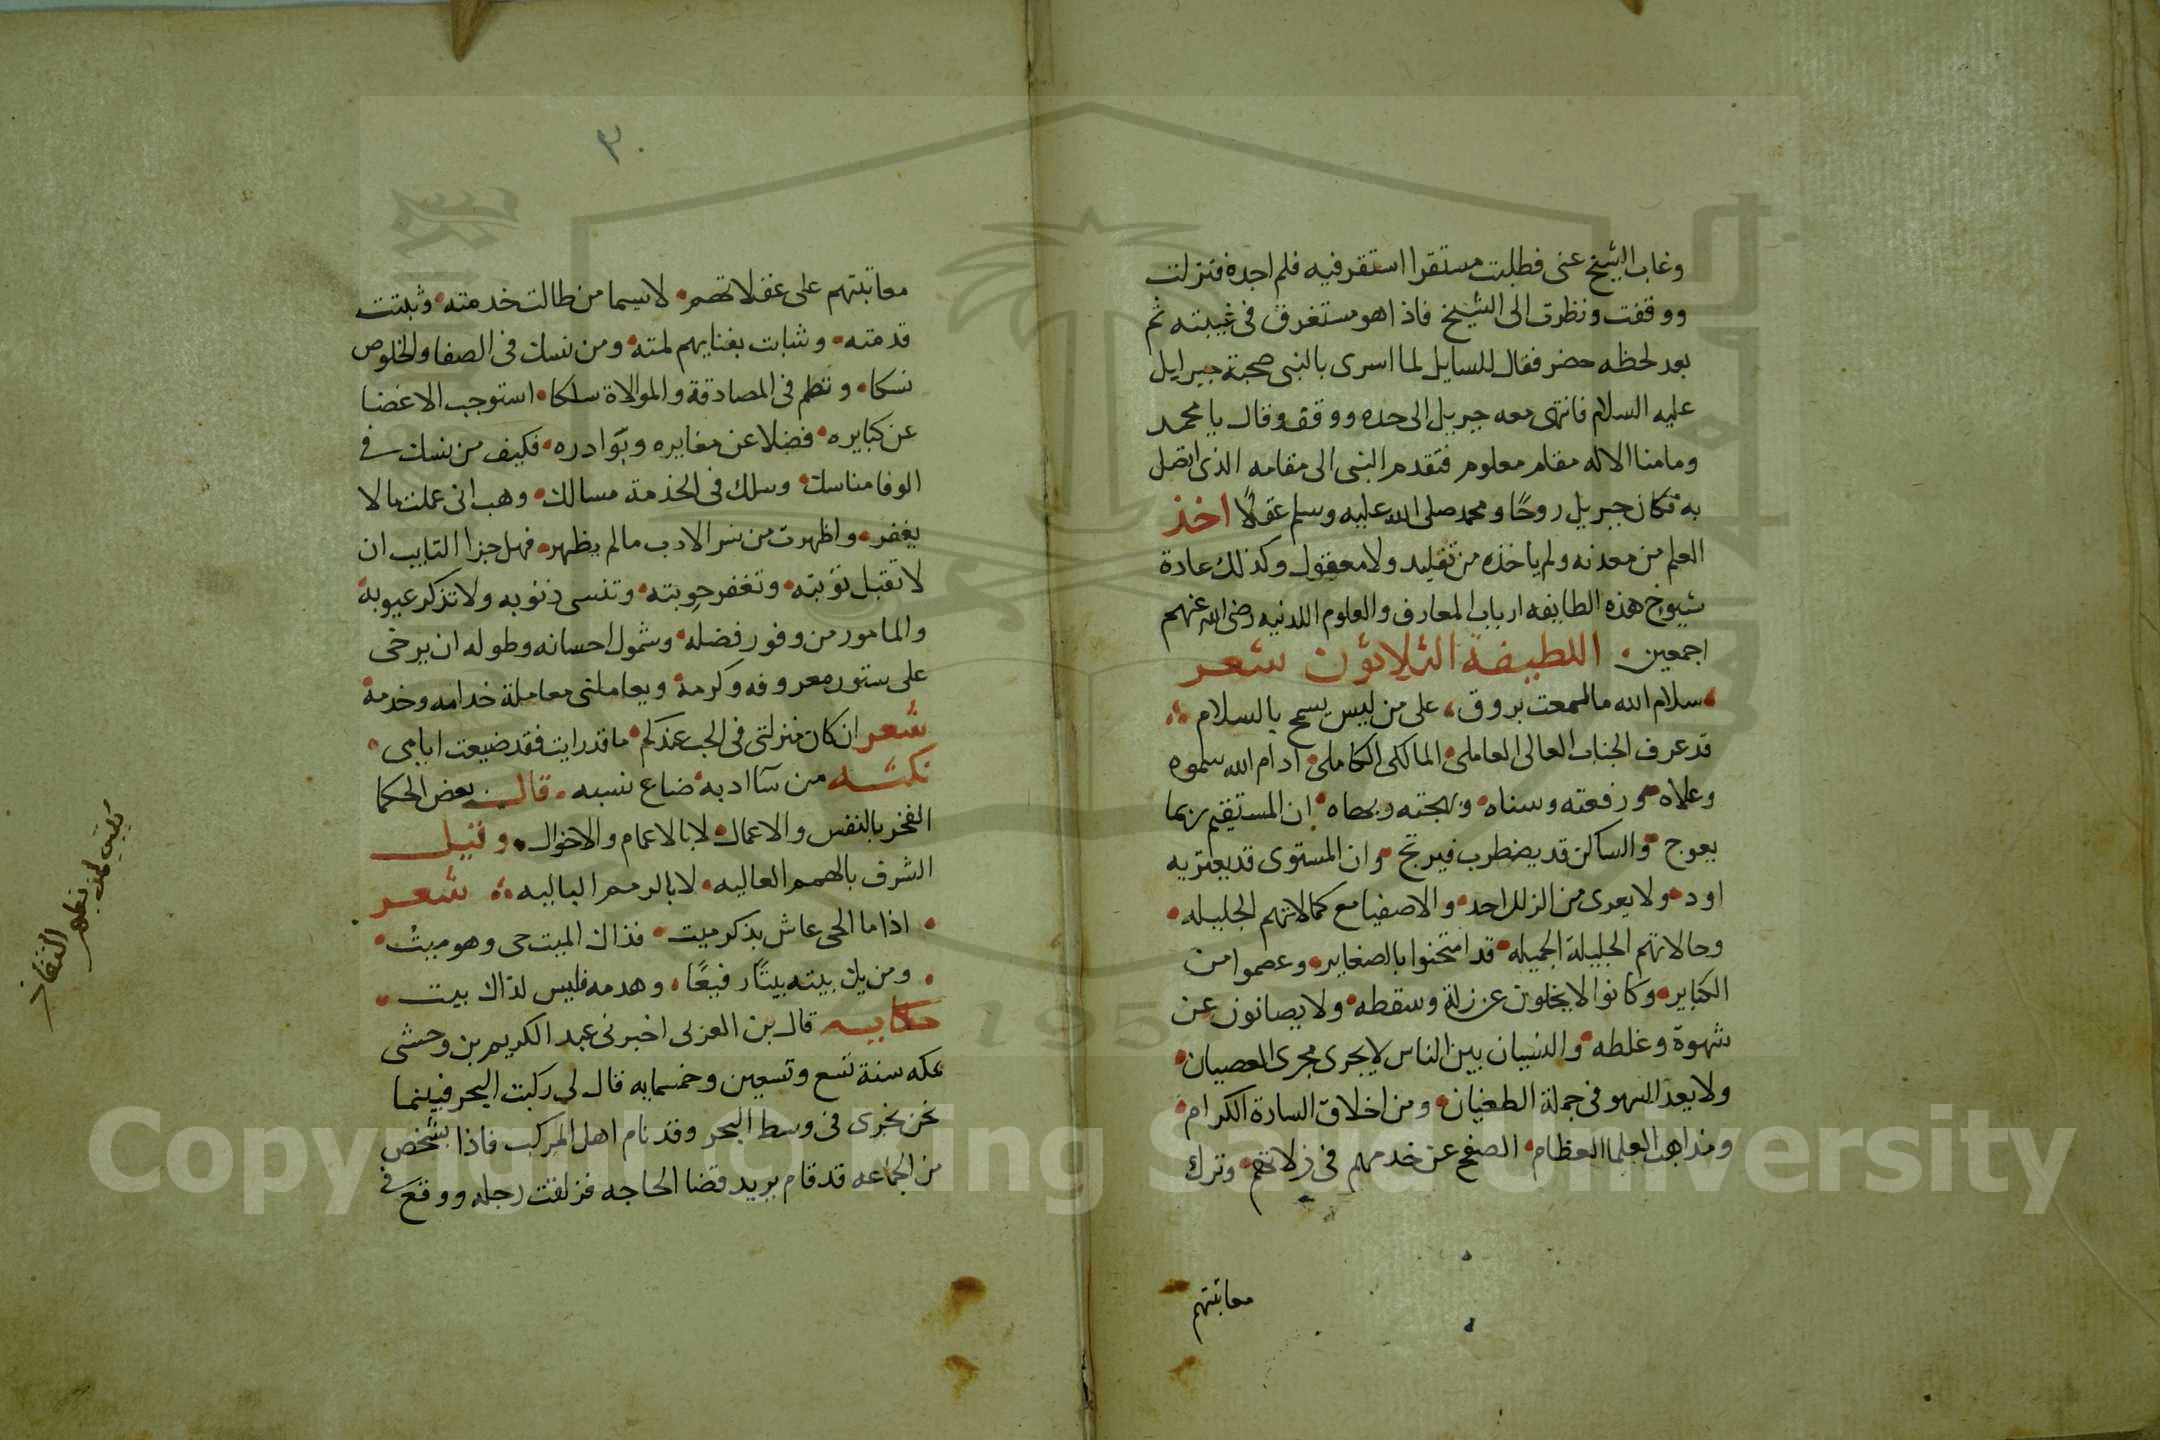 وغاب الشيخ عنى فطلبت مستقرا استقر فيه فلم اجده فنزلت
ووقفت ونظرت الى الشيخ فاذا هو مستغرق فى غيبته ثم
بعد لحظه حضر فقال للسايل لما اسرى بالنبى صحبة جبرايل
عليه السلام فانتهى معه جبريل الى حده ووقف وقال يا محمد
وما منا الا له مقام معلوم فتقدم النبى الى مقامه الذى اتصل
به فكان جبريل روحًا ومحمد صلى الله عليه وسلم عقلًا اخذ
العلم من معدنه ولم ياخذه من تقليد ولا معقول وكذلك عادة
شيوخ هذه الطايفه ارباب المعارف والعلوم اللدنيه رضى الله عنهم
اجمعين اللطيفة الثلاثون شعر
سلام الله ما لمعت بروق على من ليس يسمح بالسلام
قد عرف الجناب العالى العاملى المالكى الكاملى ادام الله سموه
وعلاه ورفعته وسناه وبهجته وبهاه ان المستقيم ربما
يعوج والساكن قد يضطرب فيرتج وان المستوى قد يعتريه
اود ولا يعرى من الزلل احد والاصفيا مع كمالاتهم الجليله
وحالاتهم الجليلة الجميله قد امتحنوا بالصغاير وعصموا من
الكباير وكانوا لا يخلون عن زلة وسقطه ولا يصانون عن
شهوة وغلطه والنسيان بين الناس لا يجرى مجرى العصيان
ولا يعد السهو فى جملة الطغيان ومن اخلاق السادة الكرام
ومذاهب العلما العظام الصفح عن خدمهم فى زلاتهم وترك
معاتبتهم
٣٠
معاتبتهم على غفلاتهم لا سيما من طالت خدمته وثبتت
قدمته وشابت بفنايهم لمته ومن نسك فى الصفا والخلوص
نسكا ونظم فى المصادقة والموالاة سلكا استوجب الاغضا
عن كبايره فضلا عن مغايره وبوادره فكيف من نسك فى
الوفا مناسك وسلك فى الخدمة مسالك وهب انى عملت ما لا
يغفر واظهرت من سر الادب ما لم يظهر فهل جزا التايب ان
لا تقبل توبته وتغفر حوبته وتنسى ذنوبه ولا تذكر عيوبه
والمامور من وفور فضله وشمول احسانه وطوله ان يرخى
على ستور معروفه وكرمه ويعاملنى معاملة خدامه وخدمه
شعر ان كان منزلتى فى الحب عندكم ما قد رايت فقد ضيعت ايامى
نكته من سآ ادبه ضاع نسبه قال بعض الحكما
الفخر بالنفس والاعمال لا بالاعمام والاخوال وقيل
الشرف بالهمم العاليه لا بالرمم الباليه شعر
اذا ما الحى عاش بذكر ميت فذاك الميت حى وهو ميت
ومن يك بيته بيتًا رفيعًا وهدمه فليس لذاك بيت
حكايه قال بن العربى اخبرنى عبد الكريم بن وحشى
بمكه سنة تسع وتسعين وخمسمايه قال لى ركبت البحر فبينما
نحن نجرى فى وسط البحر وقد نام اهل المركب فاذا بشخص
من الجماعه قد قام يريد قضا الحاجه فزلقت رجله ووقع فى
Copyright © King Saud University
1957